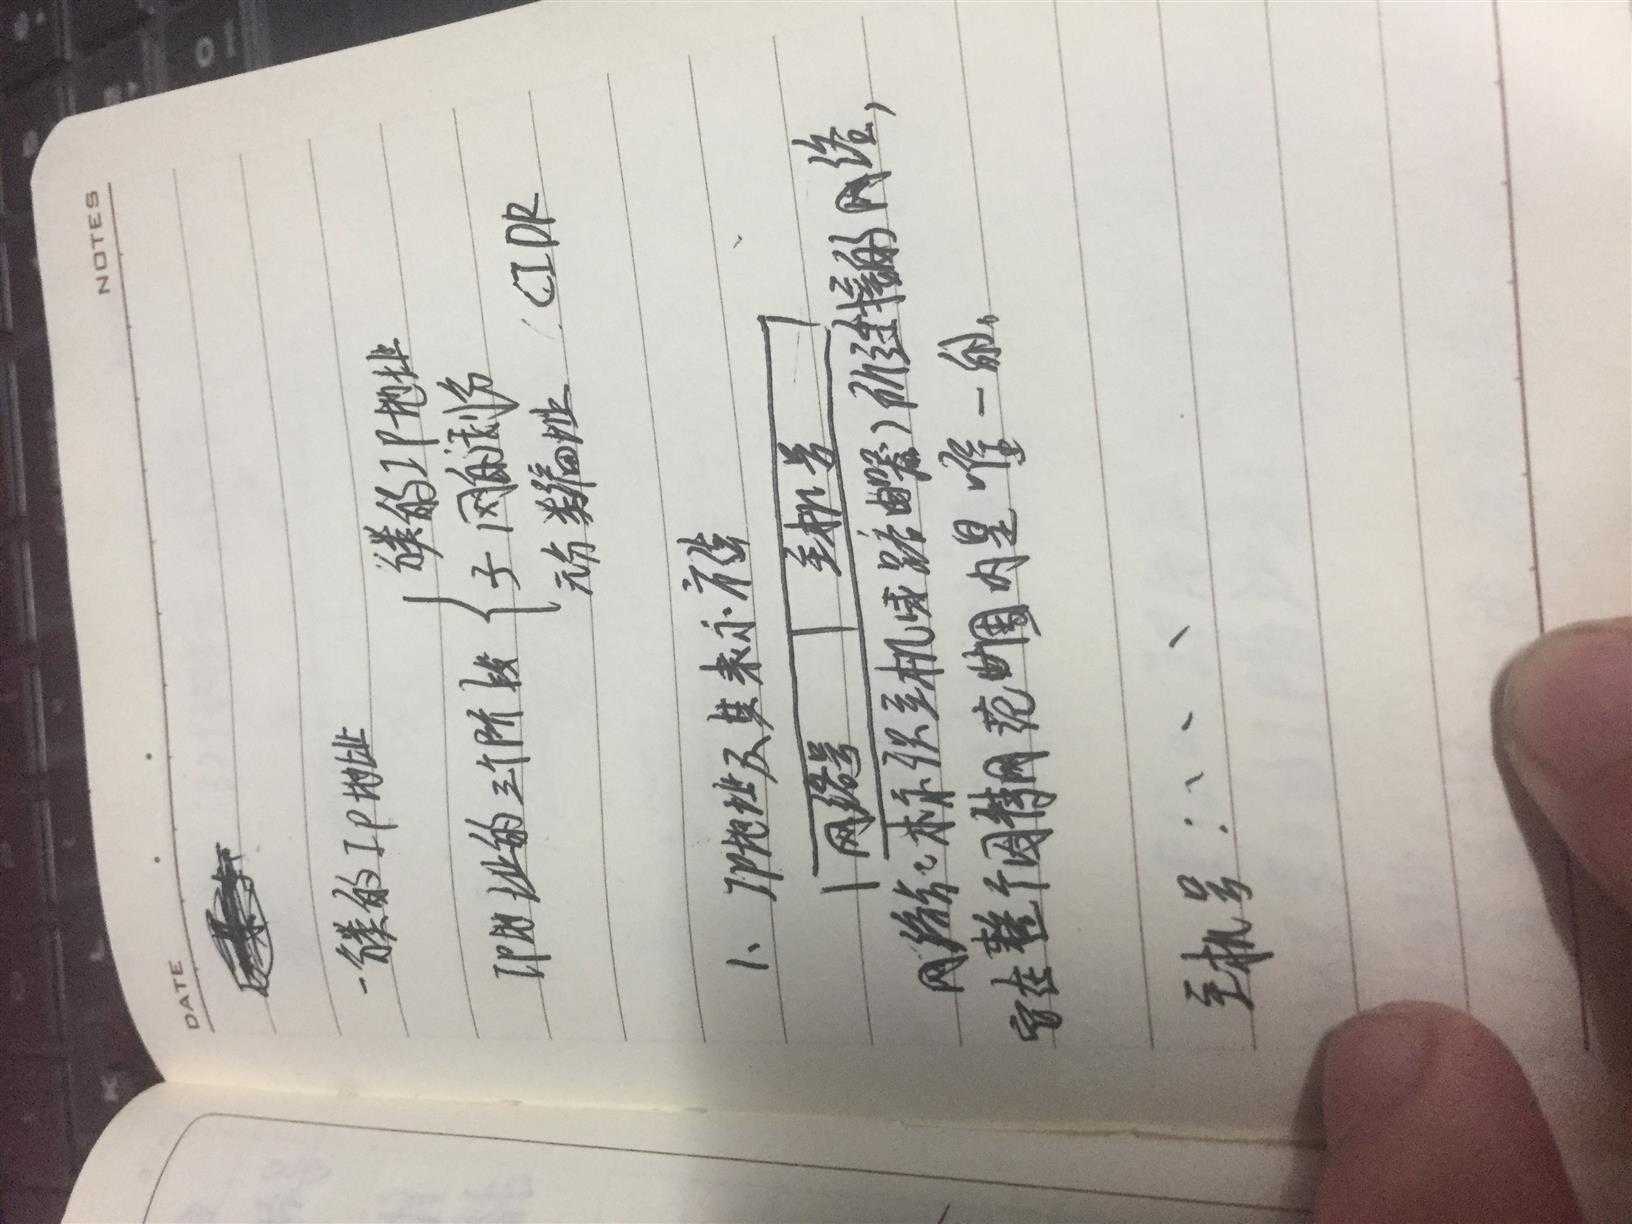 DATE
NOTES
一 分类的IP地址
IP地址的三个阶段
分类的IP地址
子网的划分
无分类编址 CIDR
1、IP地址及其表示方法
网络号 主机号
网络号:标识主机(或路由器)所连接的网络,
它在整个因特网范围内是唯一的。
主机号:、、、